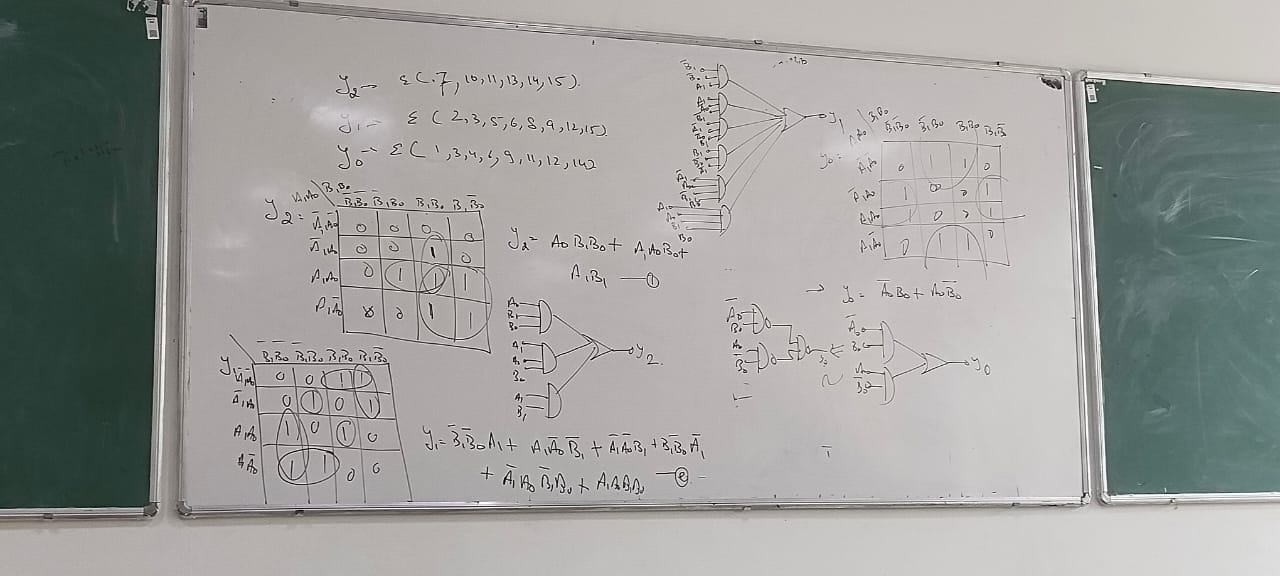 y₂ = Σ(.7, 10, 11, 13, 14, 15).
y₁ = Σ (2, 3, 5, 6, 8, 9, 12, 15)
y₀ = Σ( 1, 3, 4, 6, 9, 11, 12, 14)
y₂ =
A₁A₀ \ B₁B₀
B̅₁B̅₀ B̅₁B₀ B₁B₀ B₁B̅₀
A̅₁A̅₀ 0 0 0 0
A̅₁A₀ 0 0 1 0
A₁A₀ 0 1 1 1
A₁A̅₀ 0 0 1 1
y₂ = A₀B₁B₀ + A₁A₀B₀ +
A₁B₁ — ①
A₀
B₁
B₀
A₁
A₀
B₀
A₁
B₁
y₂
y₁
B̅₁B̅₀ B̅₁B₀ B₁B₀ B₁B̅₀
A̅₁A̅₀ 0 0 1 1
A̅₁A₀ 0 1 0 1
A₁A₀ 1 0 1 0
A₁A̅₀ 1 1 0 0
y₁ = B̅₁B̅₀A₁ + A₁A̅₀B̅₁ + A̅₁A̅₀B₁ + B₁B̅₀A̅₁
+ A̅₁A₀B̅₁B₀ + A₁A₀B₁B₀ — ②
y₁
y₀ =
A₁A₀ \ B₁B₀
B̅₁B̅₀ B̅₁B₀ B₁B₀ B₁B̅₀
A̅₁A̅₀ 0 1 1 0
A̅₁A₀ 1 0 0 1
A₁A₀ 1 0 0 1
A₁A̅₀ 0 1 1 0
→ y₀ = A̅₀B₀ + A₀B̅₀
A̅₀
B₀
A₀
B̅₀
y₀
A̅₀
B₀
A₀
B̅₀
y₀